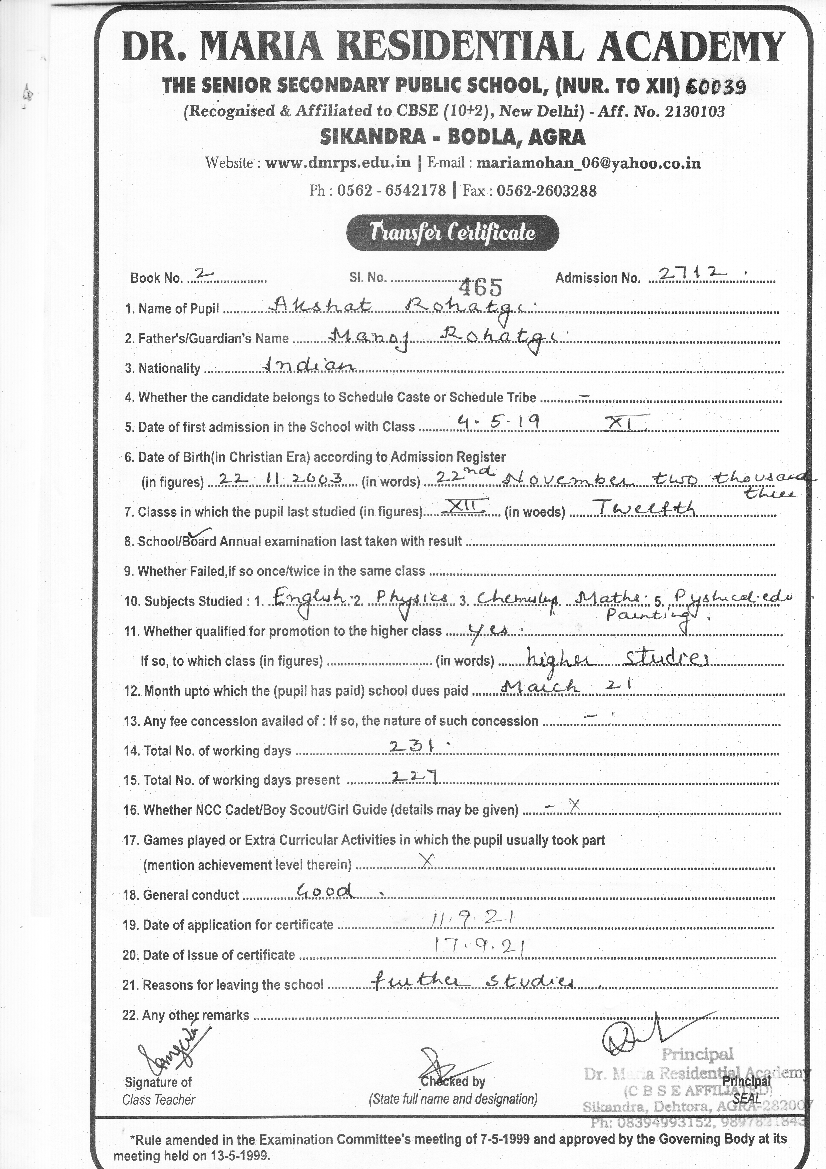 DR. MARIA RESIDENTIAL ACADEMY
THE SENIOR SECONDARY PUBLIC SCHOOL, (NUR. TO XII) 60039
(Recognised & Affiliated to CBSE (10+2), New Delhi) - Aff. No. 2130103
SIKANDRA - BODLA, AGRA
Website : www.dmrps.edu.in | E-mail : mariamohan_06@yahoo.co.in
Ph : 0562 - 6542178 | Fax : 0562-2603288
Transfer Certificate
Book No. 2 Sl. No. 465 Admission No. 2712
1. Name of Pupil Akshat Rohatgi
2. Father's/Guardian's Name Manoj Rohatgi
3. Nationality Indian
4. Whether the candidate belongs to Schedule Caste or Schedule Tribe –
5. Date of first admission in the School with Class 4.5.19 XI
6. Date of Birth(in Christian Era) according to Admission Register
(in figures) 22 11 2003 (in words) 22nd November two thousand
three
7. Classs in which the pupil last studied (in figures) XII (in woeds) Twelfth
8. School/Board Annual examination last taken with result
9. Whether Failed,if so once/twice in the same class
10. Subjects Studied : 1. English 2. Physics 3. Chemistry Maths 5. Pyshical edu
Painting.
11. Whether qualified for promotion to the higher class yes
If so, to which class (in figures) (in words) higher studies
12. Month upto which the (pupil has paid) school dues paid March 21
13. Any fee concession availed of : If so, the nature of such concession –
14. Total No. of working days 231
15. Total No. of working days present 227
16. Whether NCC Cadet/Boy Scout/Girl Guide (details may be given) – X
17. Games played or Extra Curricular Activities in which the pupil usually took part
(mention achievement level therein) X
18. General conduct Good .
19. Date of application for certificate 11.9.21
20. Date of Issue of certificate 17.9.21
21. Reasons for leaving the school further studies
22. Any other remarks
Principal
Dr. Maria Residential Academy
(C B S E AFFILIATED)
Sikandra, Dehtora, AGRA-282007
Ph: 08394993152, 9897821843
Signature of
Class Teacher
Checked by
(State full name and designation)
Principal
SEAL
*Rule amended in the Examination Committee's meeting of 7-5-1999 and approved by the Governing Body at its
meeting held on 13-5-1999.